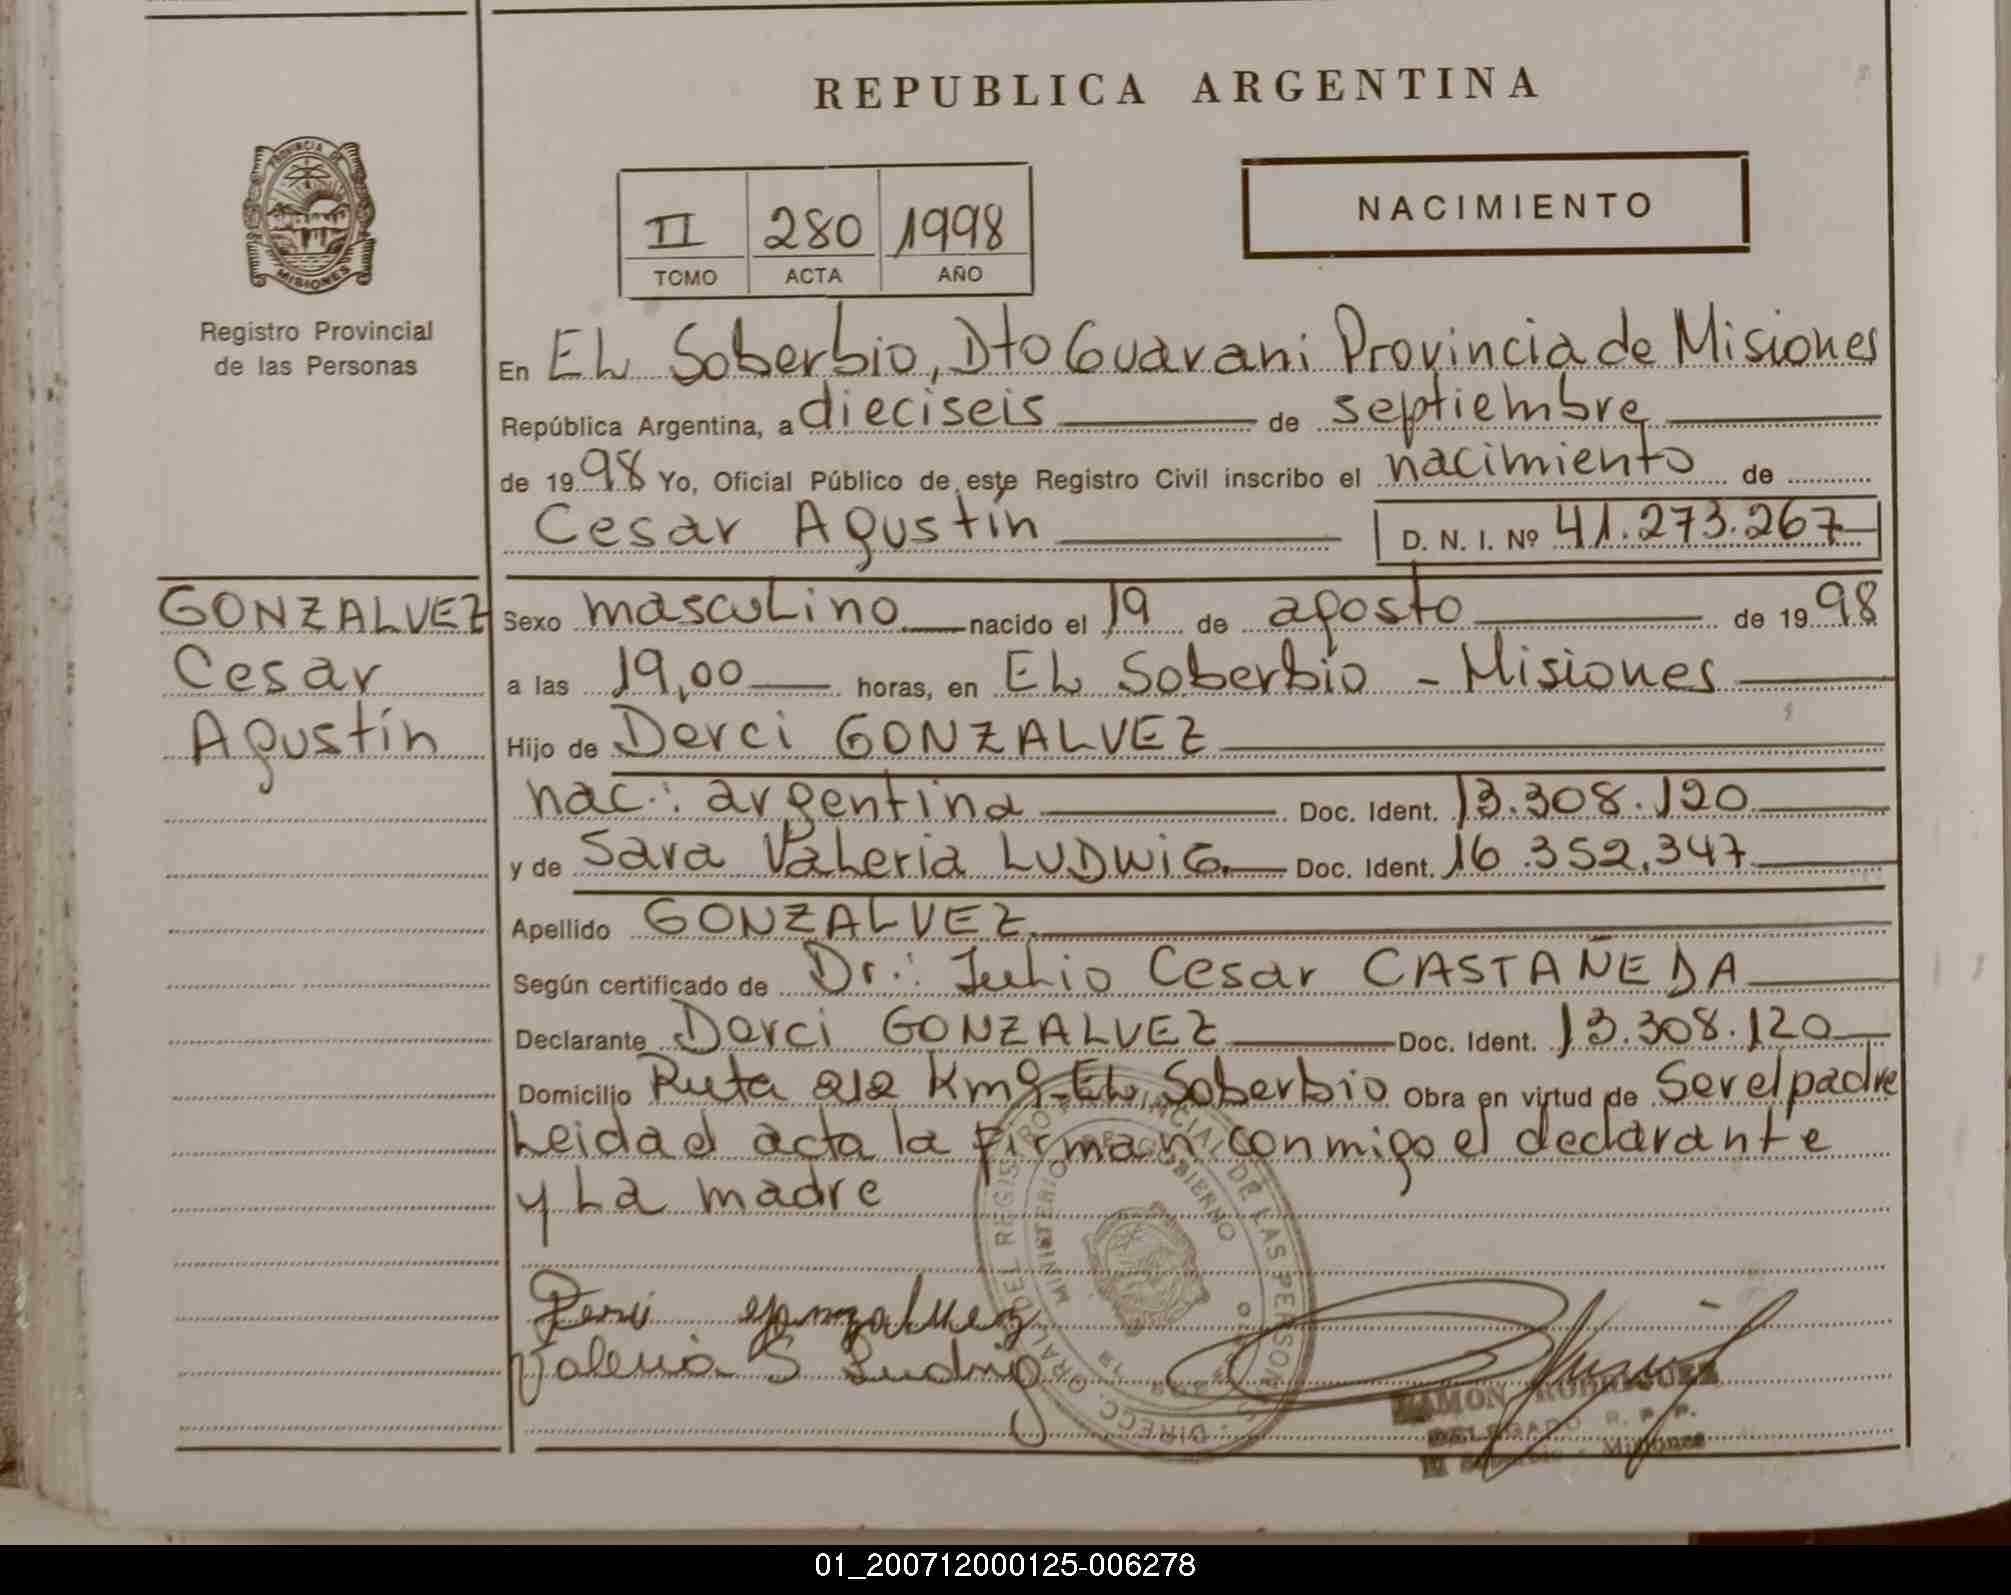 REPUBLICA ARGENTINA
PROVINCIA DE
MISIONES
Registro Provincial
de las Personas
II 280 1998
TOMO ACTA AÑO
NACIMIENTO
En EL Soberbio, Dto Guarani Provincia de Misiones
República Argentina, a dieciseis de septiembre
de 1998 Yo, Oficial Público de este Registro Civil inscribo el nacimiento de
Cesar Agustín D. N. I. Nº 41.273.267
GONZALVEZ
Cesar
Agustín
Sexo masculino nacido el 19 de agosto de 1998
a las 19,00 horas, en EL Soberbio - Misiones
Hijo de Derci GONZALVEZ
nac.: argentina Doc. Ident. 13.308.120
y de Sara Valeria LUDWIG Doc. Ident. 16.352.347
Apellido GONZALVEZ
Según certificado de Dr.: Julio Cesar CASTAÑEDA
Declarante Derci GONZALVEZ Doc. Ident. 13.308.120
Domicilio Ruta 212 Km 9-EL Soberbio Obra en virtud de Ser el padre
Leida el acta la firman conmigo el declarante
y La madre
Derci Gonzalvez
Valeria S Ludwig
DIRECC. GRAL. DEL REGISTRO PROVINCIAL DE LAS PERSONAS
MINISTERIO DE GOBIERNO
RAMON RODRIGUEZ
DELEGADO R. P. P.
El Soberbio - Misiones
01_200712000125-006278